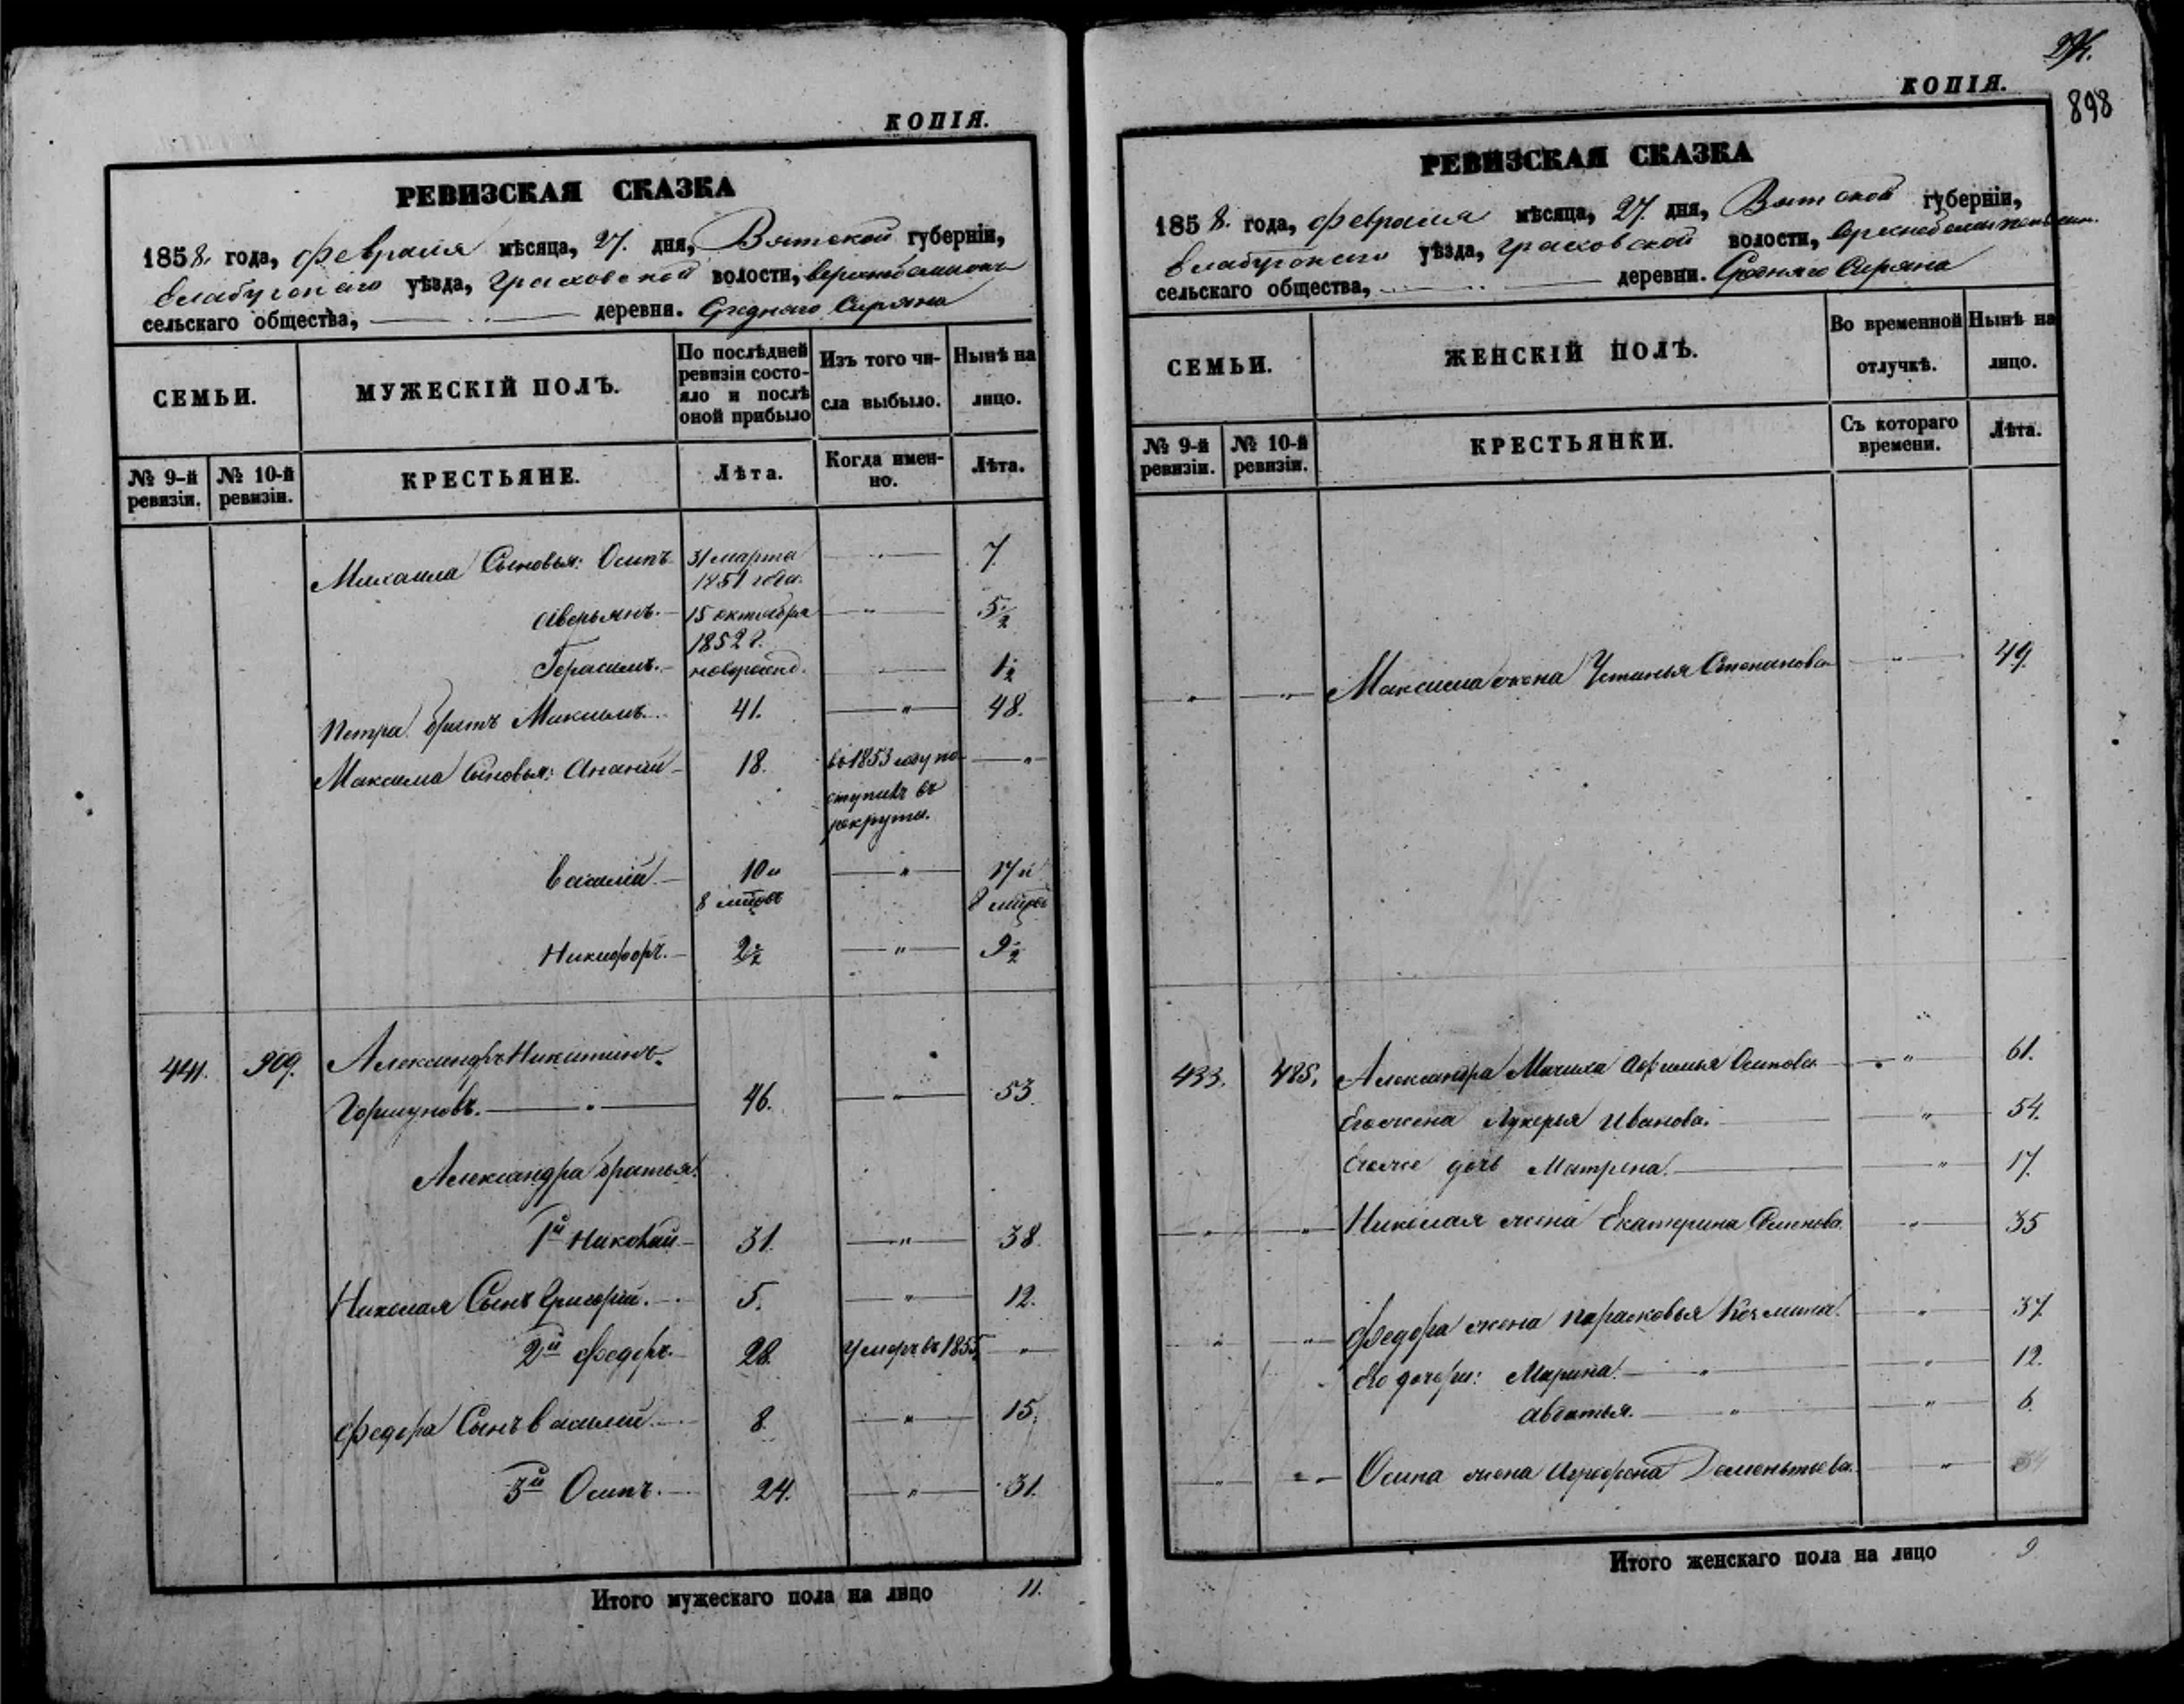 КОПІЯ.
РЕВИЗСКАЯ СКАЗКА
1858. года, февраля мѣсяца, 27. дня, Вятской губерніи,
Елабугскаго уѣзда, Граховской волости,
сельскаго общества, деревня. Средняго Сиряна
СЕМЬИ.
МУЖЕСКІЙ ПОЛЪ.
По послѣдней ревизіи состояло и послѣ оной прибыло
Изъ того числа выбыло.
Нынѣ на лицо.
№ 9-й ревизіи.
№ 10-й ревизіи.
КРЕСТЬЯНЕ.
Лѣта.
Когда именно.
Лѣта.
Михаила Сыновья: Осипъ 31 марта 1851 года. 7.
Аверьянъ. 15 октября 1852 г. 5 1/2
Герасимъ. новорожд. 1 1/2
Петра братъ Максимъ. 41. " 48.
Максима Сыновья: Ананій 18. въ 1853 году поступилъ въ рекруты. "
Василій. 10 и 8 мцовъ " 17 и 8 мцовъ
Никифоръ. 2 1/2 " 9 1/2
441. 909. Александръ Никитинъ
Горшуновъ. 46. " 53.
Александра братья:
1й Николай 31. " 38.
Николая Сынъ Григорій. 5. " 12.
2й Федоръ. 28. Умеръ въ 1855. "
Федора Сынъ Василій. 8. " 15.
3й Осипъ. 24. " 31.
Итого мужескаго пола на лицо 11.
КОПІЯ.
898
РЕВИЗСКАЯ СКАЗКА
1858. года, февраля мѣсяца, 27. дня, Вятской губерніи,
Елабугскаго уѣзда, Граховской волости,
сельскаго общества, деревни. Средняго Сиряна
СЕМЬИ.
ЖЕНСКІЙ ПОЛЪ.
Во временной отлучкѣ.
Нынѣ на лицо.
№ 9-й ревизіи.
№ 10-й ревизіи.
КРЕСТЬЯНКИ.
Съ котораго времени.
Лѣта.
" " Максима жена Устинья Степанова " 49.
433. 485. Александра Мачиха Афимья Осипова " 61.
Его жена Лукерья Иванова. " 54.
Его же дочь Матрена. " 17.
" " Николая жена Екатерина Семенова. " 35
" " Федора жена Парасковья Козмина. " 37.
Его дочери: Марина. " 12.
Авдотья. " 6.
" " Осипа жена Агрофена Дементьева. " 34
Итого женскаго пола на лицо 9